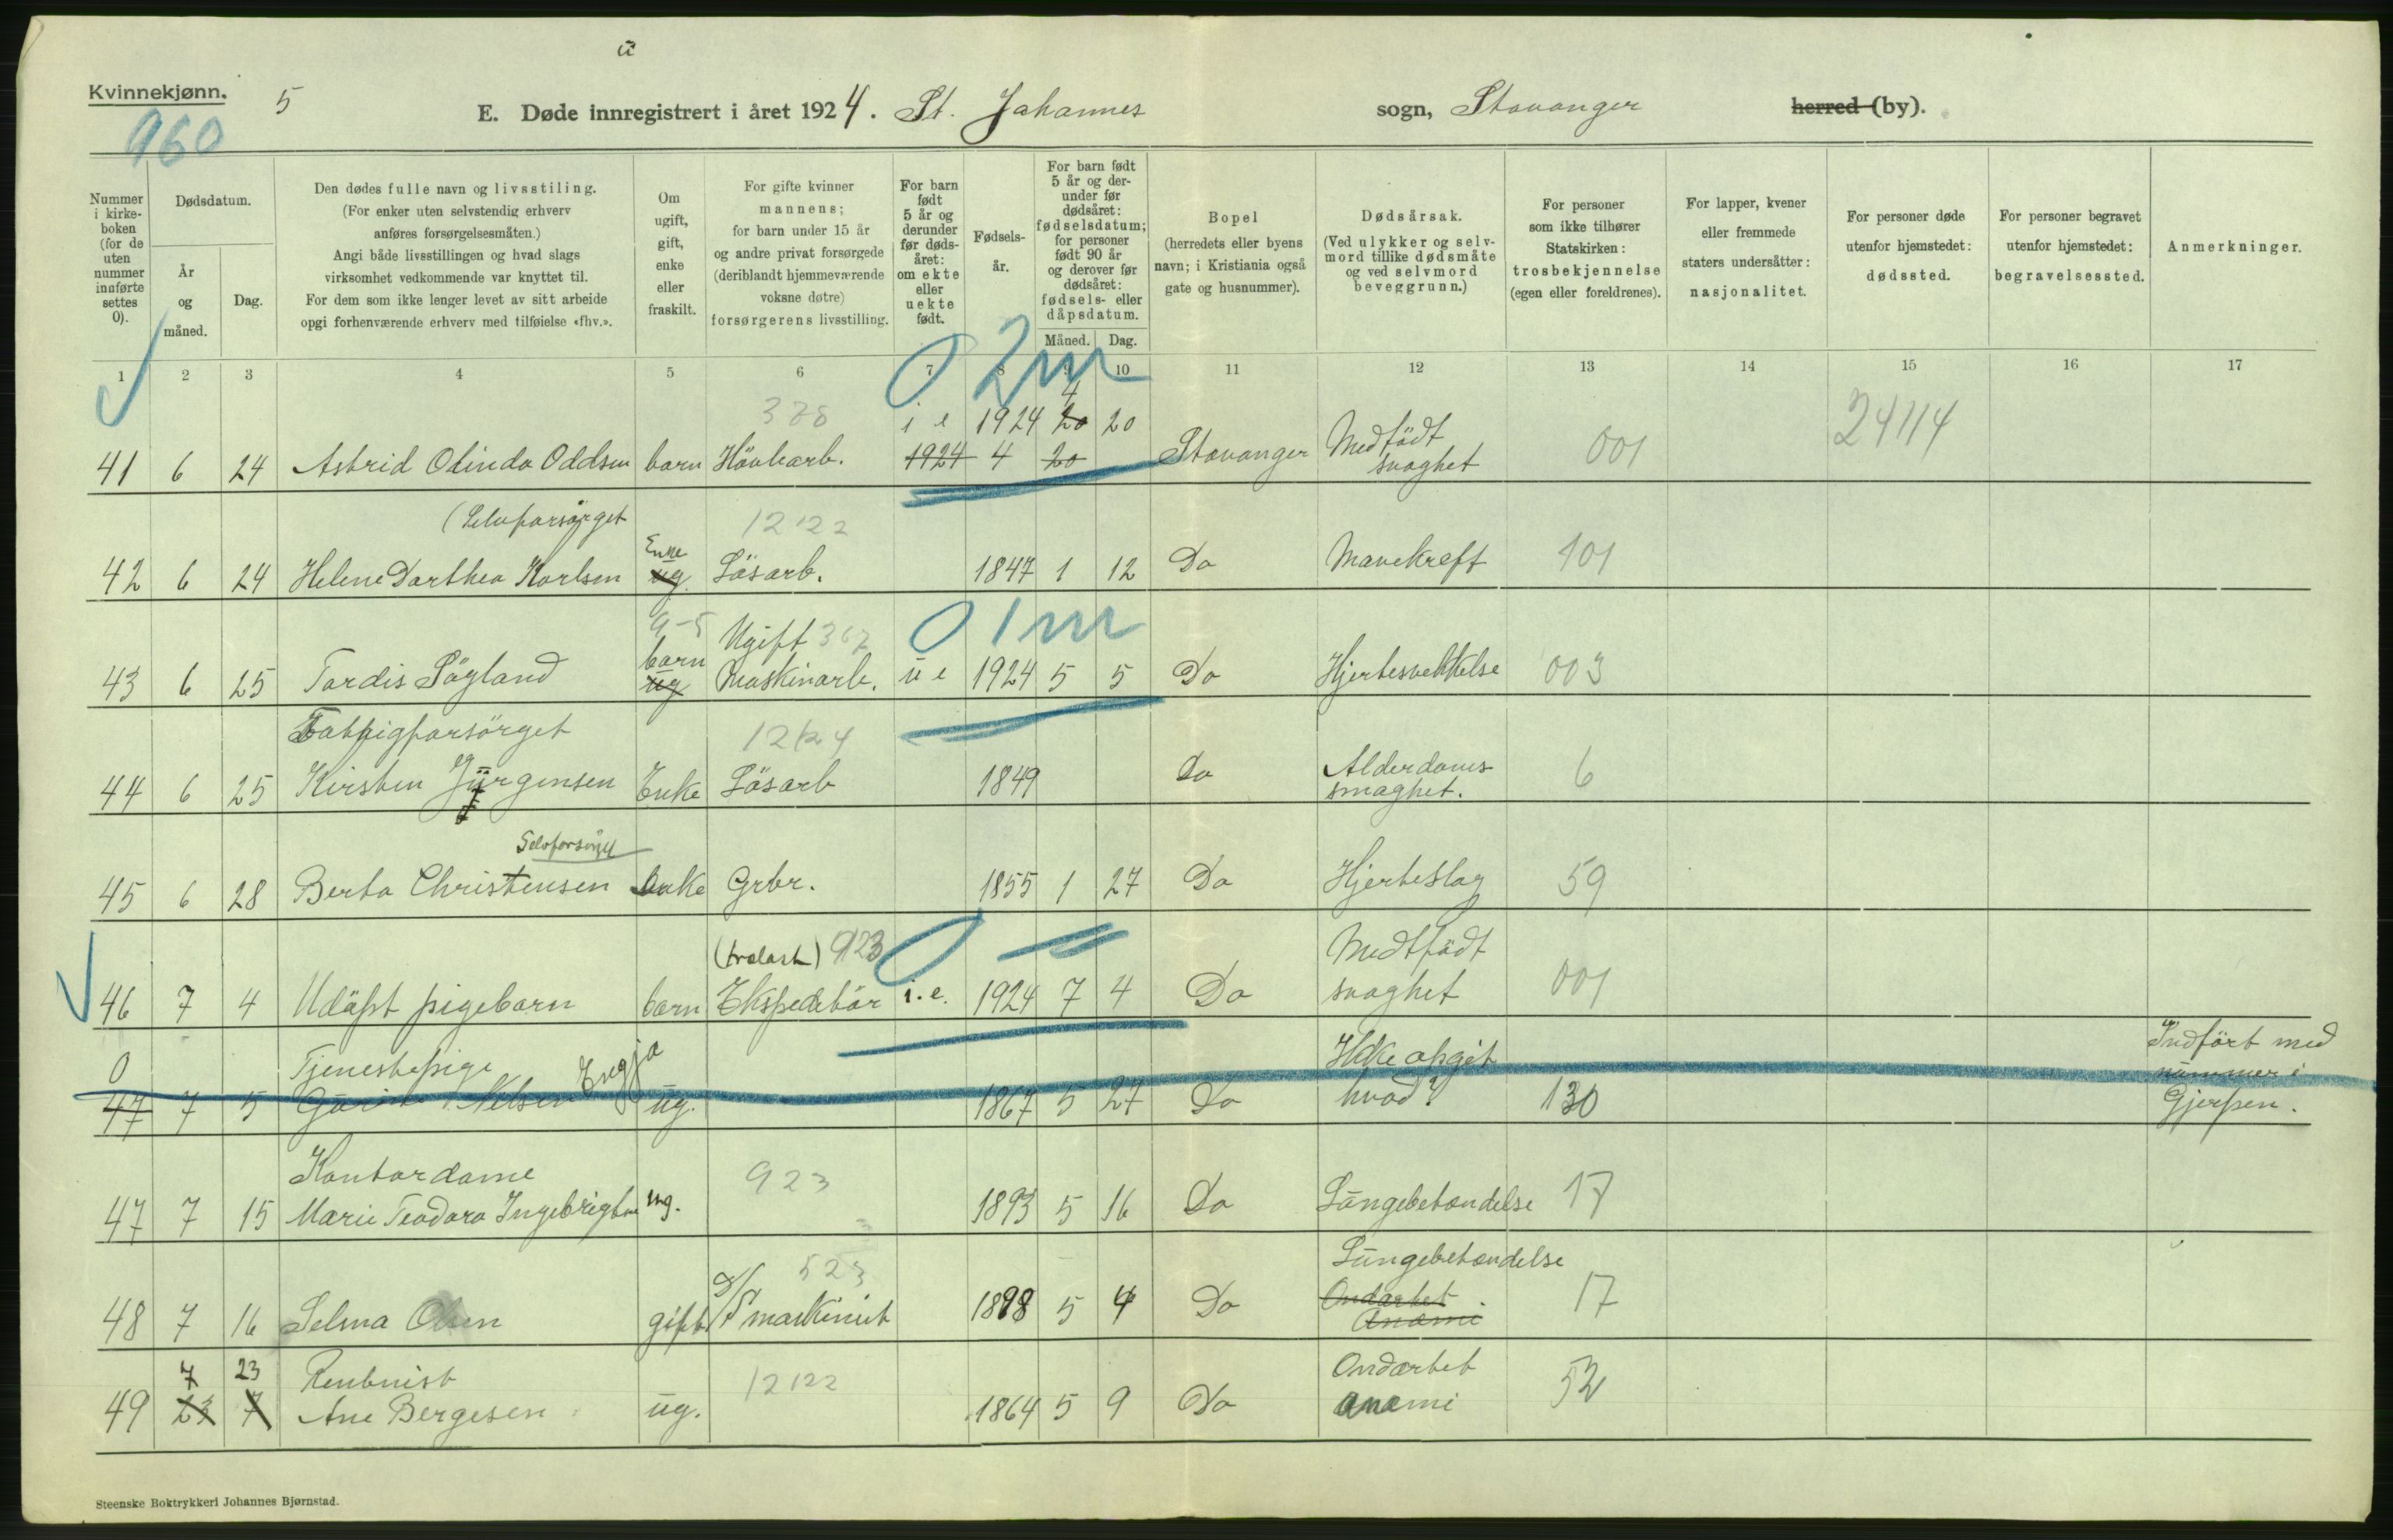 ū
Kvinnekjønn. 5
960
E. Døde innregistrert i året 1924. St. Johannes sogn, Stavanger herred (by).
Nummer i kirkeboken (for de uten nummer innførte settes 0).
Dødsdatum.
År og måned.
Dag.
Den dødes fulle navn og livsstiling.
(For enker uten selvstendig erhverv anføres forsørgelsesmåten.)
Angi både livsstillingen og hvad slags virksomhet vedkommende var knyttet til.
For dem som ikke lenger levet av sitt arbeide opgi forhenværende erhverv med tilføielse «fhv.».
Om ugift, gift, enke eller fraskilt.
For gifte kvinner mannens; for barn under 15 år og andre privat forsørgede (deriblandt hjemmeværende voksne døtre) forsørgerens livsstilling.
For barn født 5 år og derunder før dødsåret: om ekte eller uekte født.
Fødselsår.
For barn født 5 år og derunder før dødsåret: fødselsdatum; for personer født 90 år og derover før dødsåret: fødsels- eller dåpsdatum.
Måned. Dag.
Bopel (herredets eller byens navn; i Kristiania også gate og husnummer).
Dødsårsak. (Ved ulykker og selvmord tillike dødsmåte og ved selvmord beveggrunn.)
For personer som ikke tilhører Statskirken: trosbekjennelse (egen eller foreldrenes).
For lapper, kvener eller fremmede staters undersåtter: nasjonalitet.
For personer døde utenfor hjemstedet: dødssted.
For personer begravet utenfor hjemstedet: begravelsessted.
Anmerkninger.
1 2 3 4 5 6 7 8 9 10 11 12 13 14 15 16 17
0 2m
4
i e 1924 20 20 24114
41 6 24 Astrid Olinda Oddsen barn 1924 4 20 Stavanger Medfödt svaghet 001
(Selvforsørget 12122
Enke
42 6 24 Helene Dorthea Karlsen ug. Lösarb. 1847 1 12 Do Mavekreft 101
9-5 Ugift 367 0 1m
barn
43 6 25 Tordis Sögland ug Maskinarb. ū e 1924 5 5 Do Hjertesvekkelse 003
Fattigforsörget 12124
44 6 25 Kirsten Jürgensen Enke Lösarb 1849 Do Alderdoms svaghet. 6
Selvforsörget
45 6 28 Berta Christensen Enke Grbr. 1855 1 27 Do Hjerteslag 59
(trelast) 923 0
46 7 4 Udöpt pigebarn barn Ekspeditör i.e. 1924 7 4 Do Medtfödt svaghet 001
0 Tjenestepige Ikke opgit Indfört med
47 7 5 Nilsen ug. 1867 5 27 Do hvad? 130 nummer i
Gjerpen.
Kontordame 923
47 7 15 Marie Teodora Ingebrigtsen ug. 1893 5 16 Do Lungebetændelse 17
523 Lungebetændelse
48 7 16 Selma Olsen gift D/S maskinist 1898 5 4 Do Ondartet Anæmi 17
7 23 Rentnist 12122 Ondartet
49 23 7 Ane Bergesen ug. 1864 5 9 Do anæmi 52
Steenske Boktrykkeri Johannes Bjørnstad.